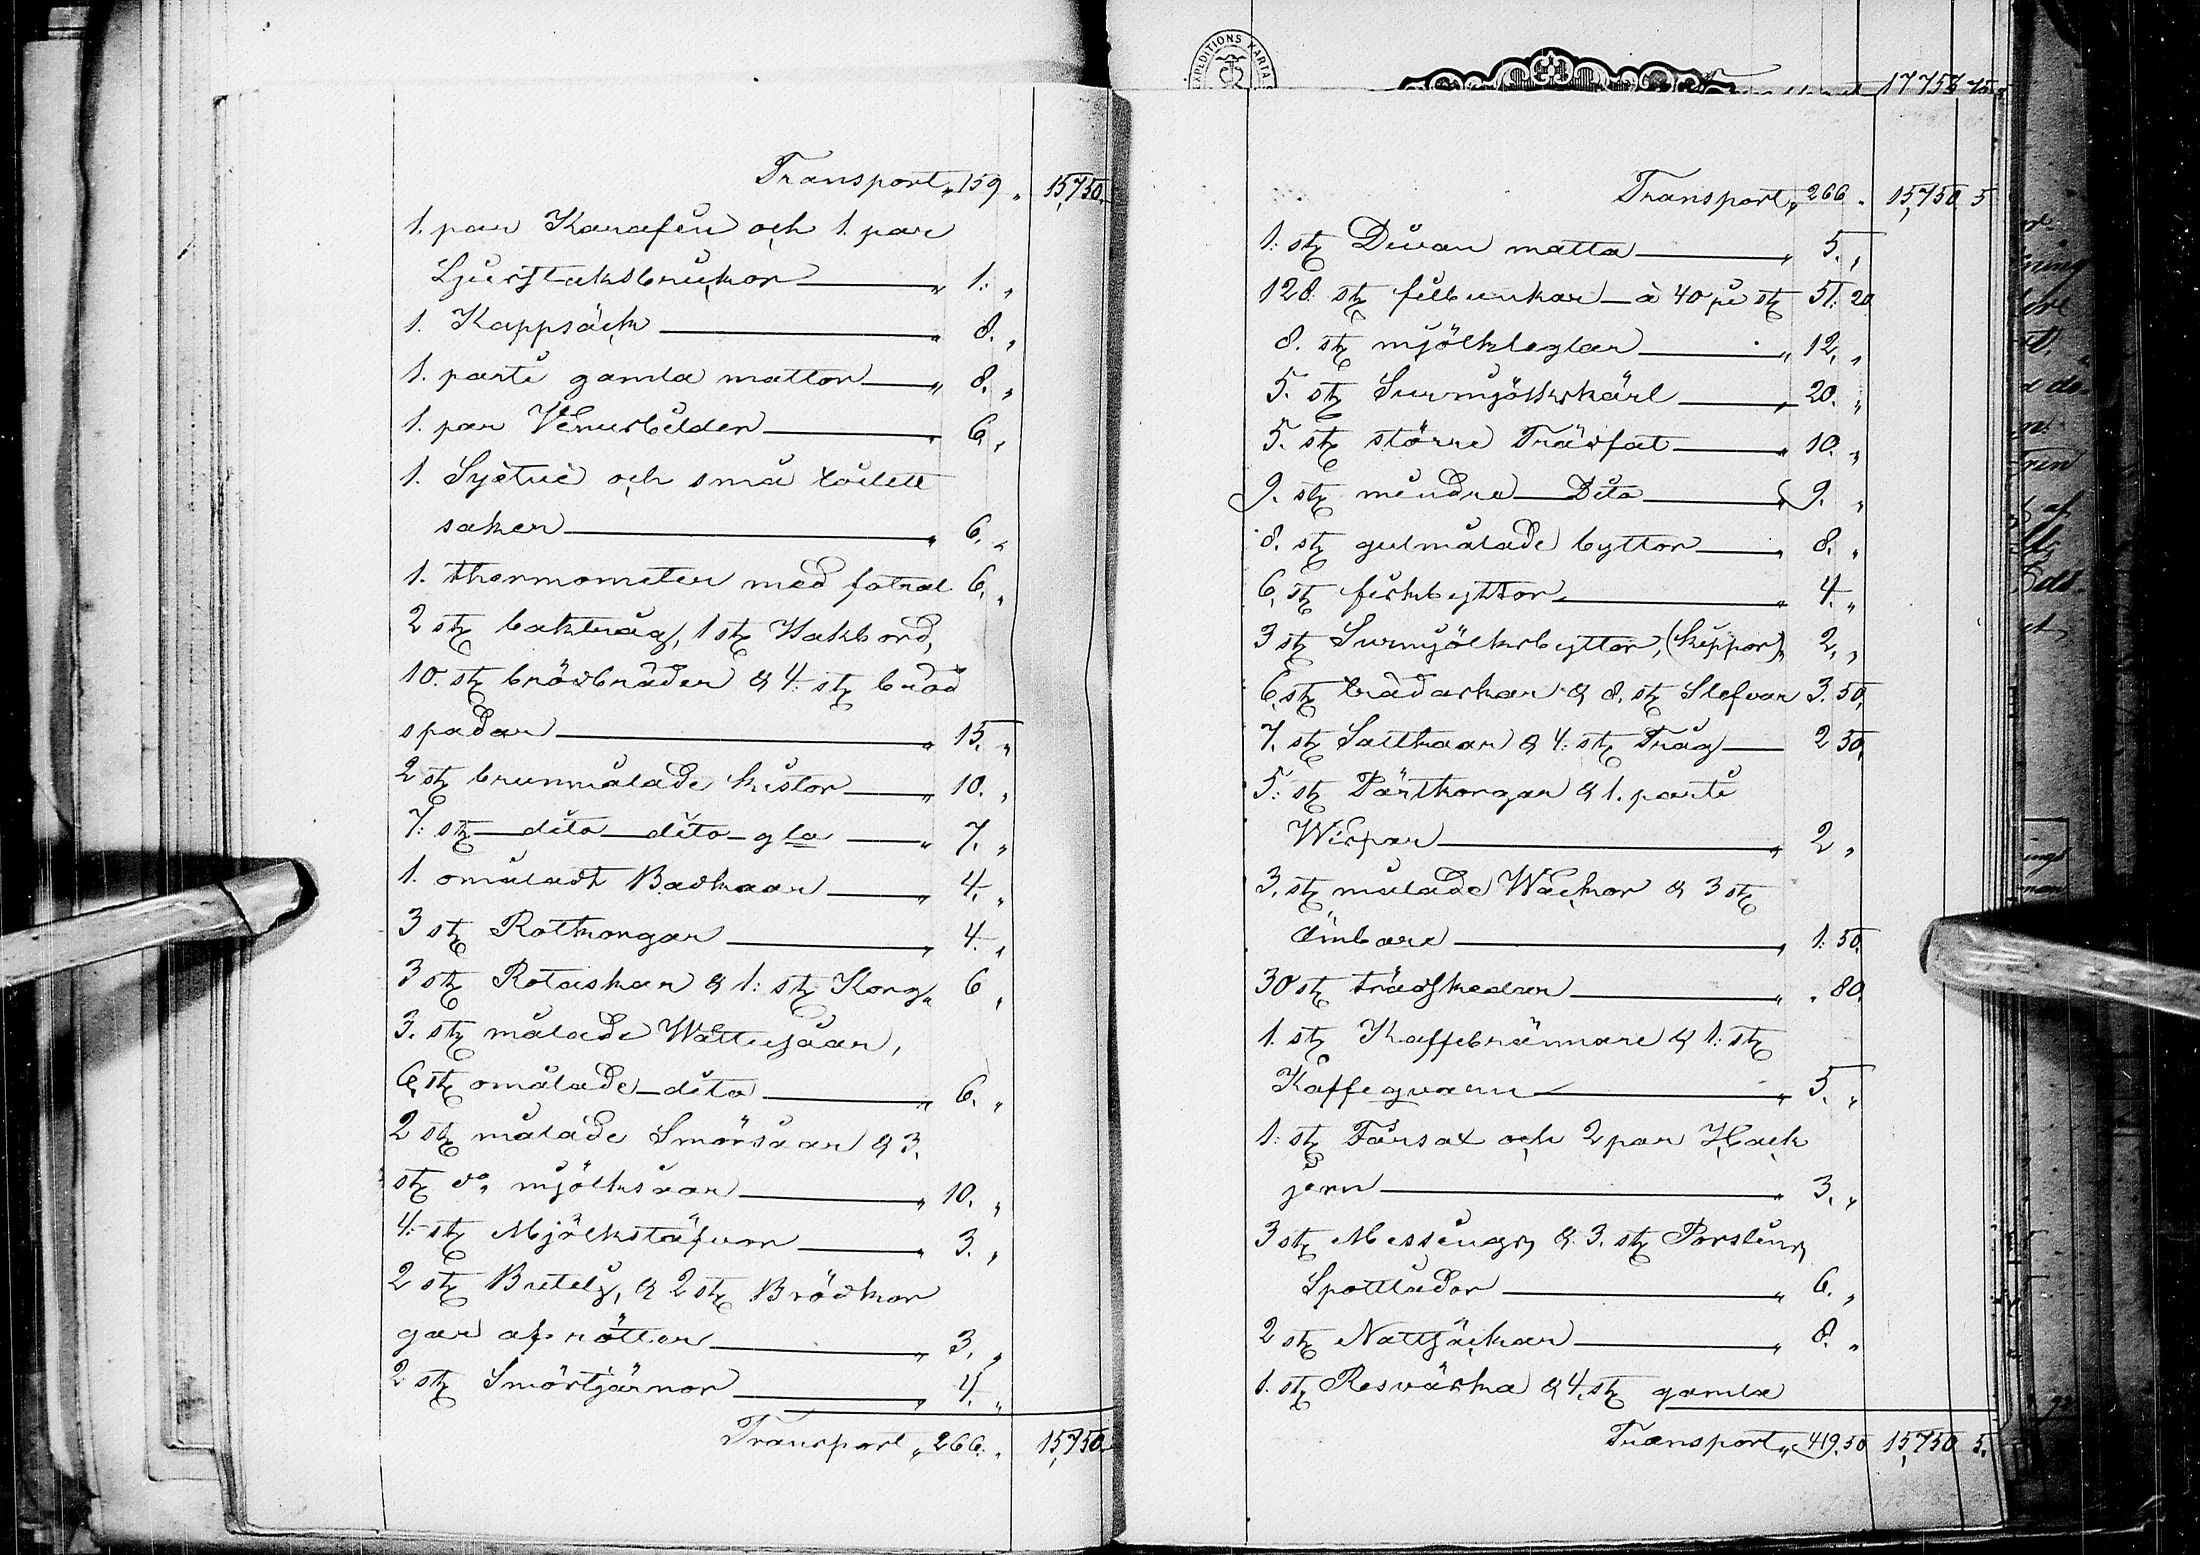 Transport „ 159 „ 15,750.
1. par Karafin och 1. par
Ljusstaksbrickor „ 1: „
1. Kappsäck „ 8. „
1. parti gamla mattor „ 8. „
1. par Venusbilder „ 6. „
1. Syetui och små toilett
saker „ 6. „
1. thermometer med fotral 6. „
2 st baktråg, 1 st Kakbord,
10. st brödbräder & 4: st bröd
spadar „ 15. „
2 st brunmålade kistor „ 10. „
7: st dito dito gla „ 7. „
1. omåladt Badkaar „ 4. „
3 st Rotkorgar „ 4. „
3 st Rotaskar & 1: st Korg „ 6 „
3. st målade Wattusåar,
6, st omålade dito „ 6. „
2 st målade Smörsåar & 3.
st do mjölksåar „ 10. „
4: st Mjölkstäfvor „ 3. „
2 st & 2 st Brödkor
gar af rötter „ 3. „
2 st Smörtjärnor „ 4. „
Transport „ 266. „ 15,750
EXPEDITIONS KARTA
17756 75
Transport „ 266 „ 15,750. 5
1: st Divan matta „ 5. „
128. st filbunkar à 40 pi st 51. 20
8. st mjölkteglar „ 12. „
5. st Surmjölkskärl „ 20. „
5. st större Trädfat „ 10. „
9. st mindre Dito „ 9. „
8. st gulmålade byttor „ 8. „
6, st fiskbyttor „ 4. „
3 st Surmjölksbyttor, (kippor) „ 2. „
6, st brådaskar & 8. st Slefvar 3. 50,
7. st Saltkaar & 4: st Tråg 2 50,
5: st Pärtkorgar & 1. parti
Wispar „ 2 „
3, st målade Wäckor & 3 st
Ämbare „ 1: 50.
30 st trädskedar „ „ 80.
1. st Kaffebrännare & 1: st
Kaffeqvarn „ 5. „
1: st Fårsax och 2 par Hack
jern „ 3. „
3 st Messings & 3. st Porslins
Spottlådor „ 6. „
2 st Nattjäckar „ 8. „
1. st Resväska & 4. st gamla
Transport „ 419. 50 15,750 5.